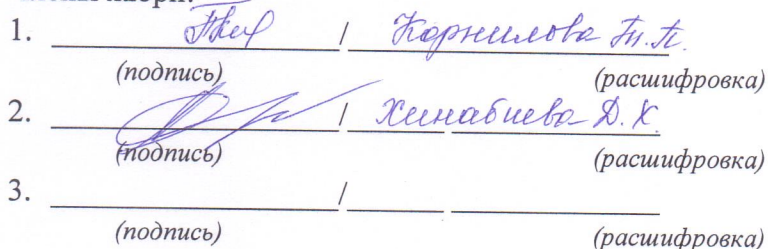 1. / Корнилова Т.П.
(подпись) (расшифровка)
2. / Хинабиева Д.Х.
(подпись) (расшифровка)
3. /
(подпись) (расшифровка)